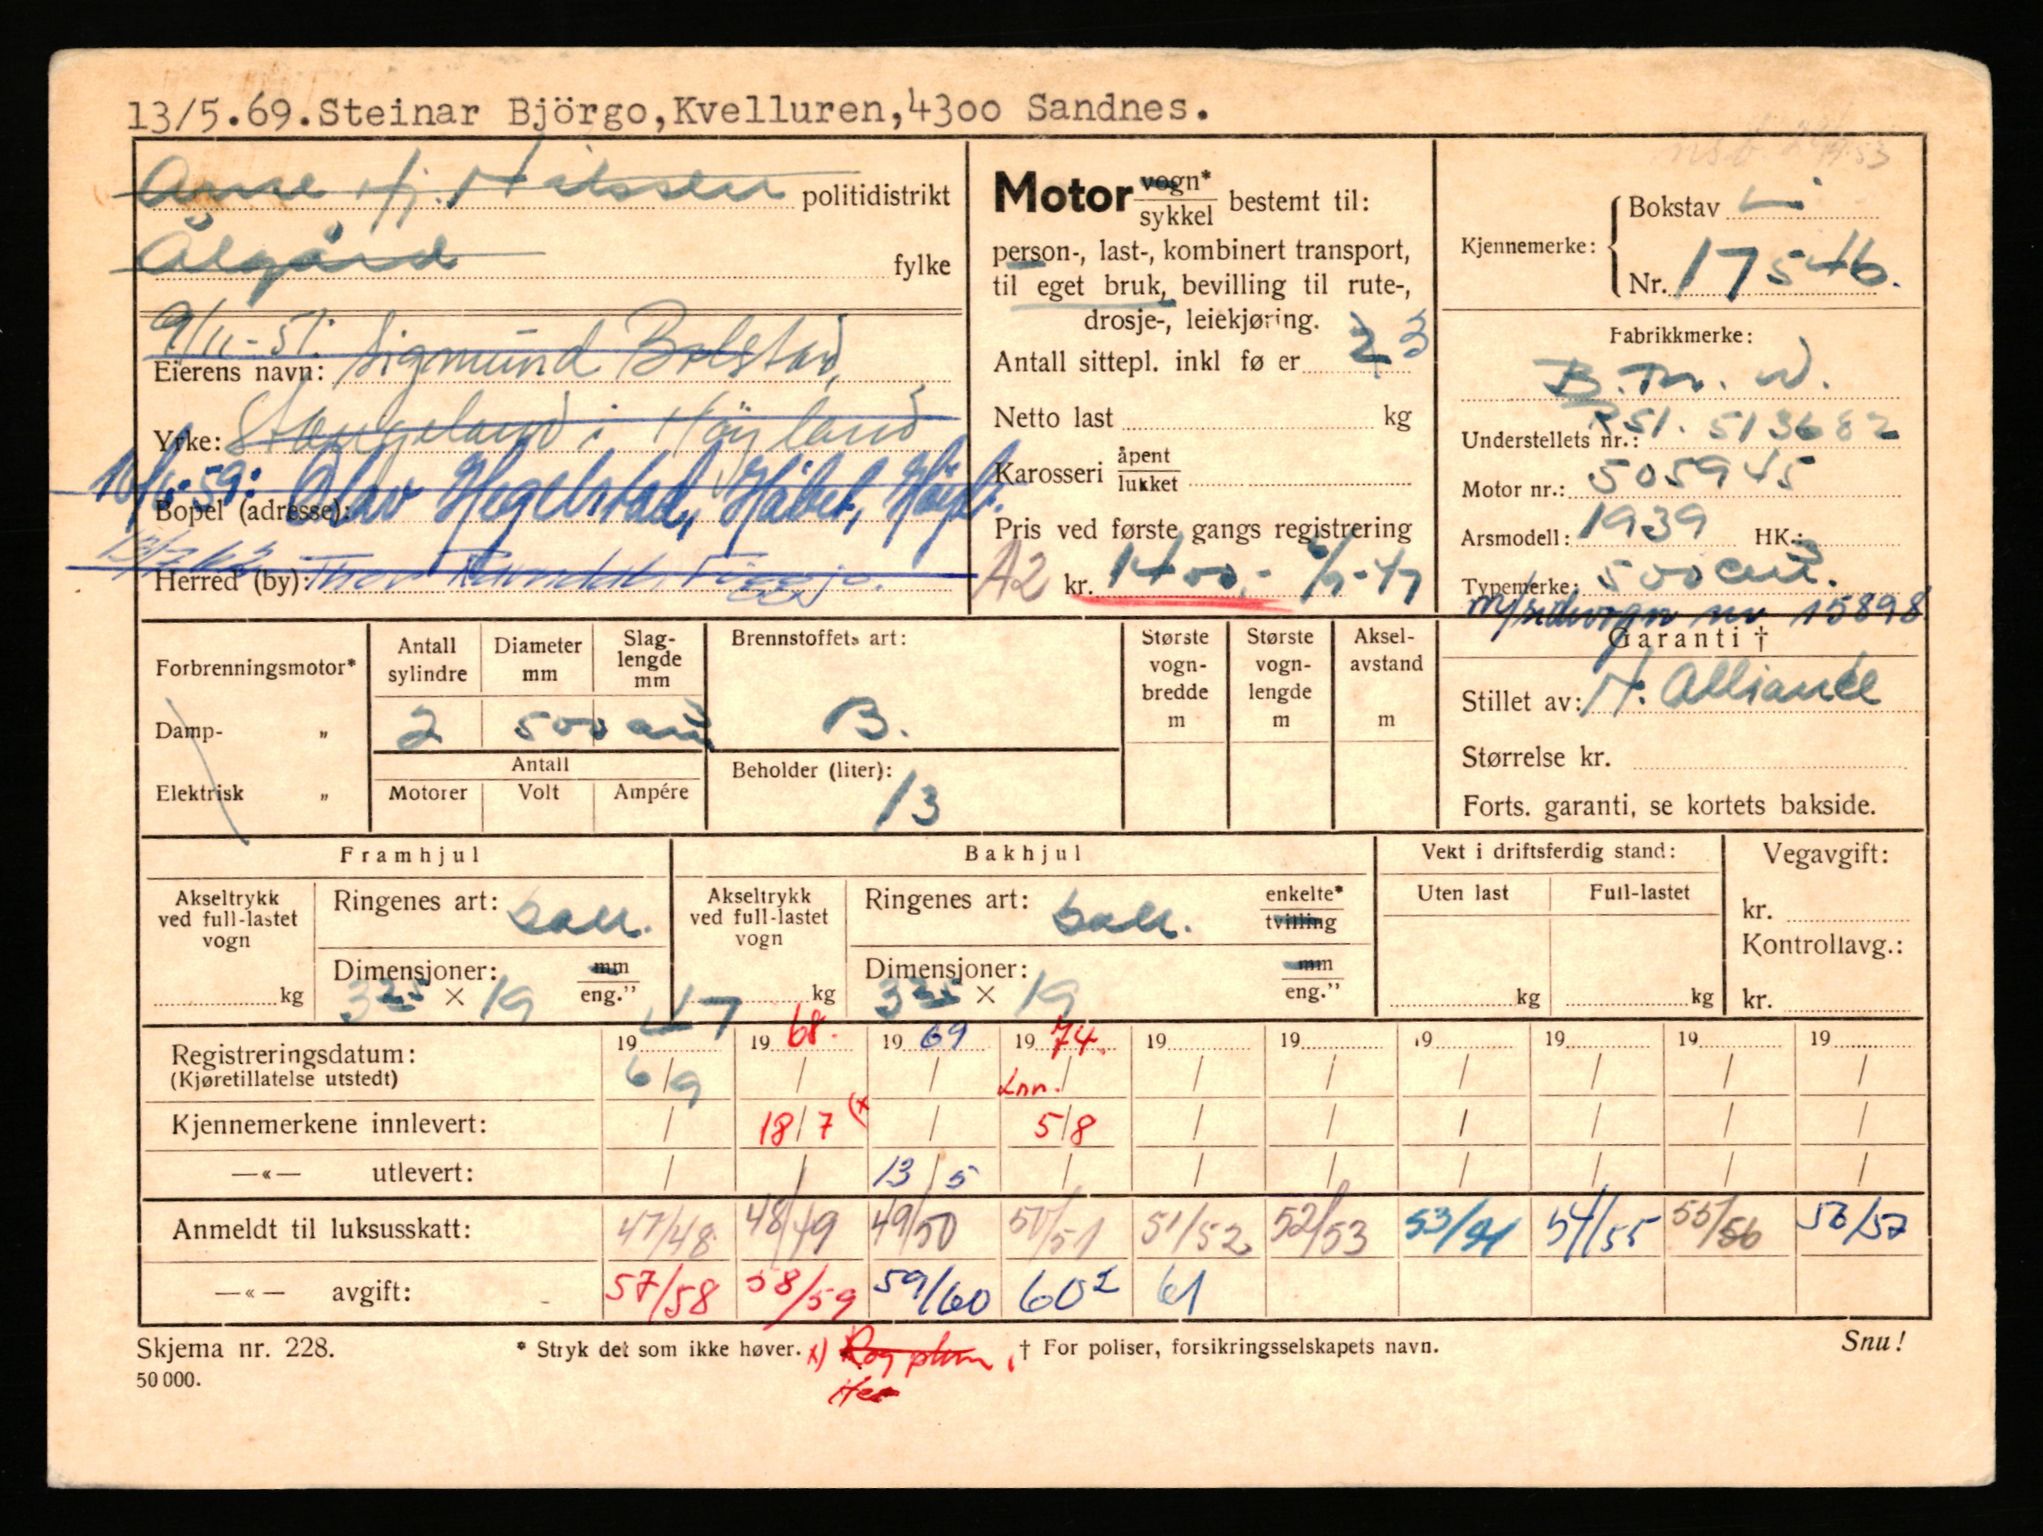 13/5.69.Steinar Björgo,Kvelluren,4300 Sandnes.
Arne Hj. Nilssen politidistrikt
Ålgård fylke
9/11-51: Sigmund Bolstad,
Eierens navn:
Yrke: Stangeland i Höyland
10/6-59: Olav Hegelstad, Håbet, Höyl.
Bopel (adresse):
Herred (by): Thor
Motor vogn* sykkel bestemt til:
person-, last-, kombinert transport,
til eget bruk, bevilling til rute-,
drosje-, leiekjøring.
Antall sittepl. inkl fø er 2 3
Netto last kg
Karosseri åpent lukket
Pris ved første gangs registrering
A2 kr. 1400.- 6/9-47
Kjennemerke: Bokstav L
Nr. 17546.
Fabrikkmerke:
B.M.W.
R51. 513682
Understellets nr.:
Motor nr.: 505945
Arsmodell: 1939 HK.:
Typemerke: 500 cm3.
m/sidevogn nr 15898
Garanti †
Stillet av: N. Alliance
Størrelse kr.
Forts. garanti, se kortets bakside.
Forbrenningsmotor*
Damp- „
Elektrisk „
Antall sylindre
Diameter mm
Slag-lengde mm
2 500 cm3
Antall
Motorer Volt Ampére
Brennstoffets art:
B.
Beholder (liter):
13
Største vogn-bredde m
Største vogn-lengde m
Aksel-avstand m
Framhjul
Akseltrykk ved full-lastet vogn
kg
Ringenes art: ball.
Dimensjoner: mm eng."
325 × 19
Bakhjul
Akseltrykk ved full-lastet vogn
kg
Ringenes art: ball. enkelte* tvilling
Dimensjoner: mm eng."
325 × 19
Vekt i driftsferdig stand:
Uten last Full-lastet
kg kg
Vegavgift:
kr.
Kontrollavg.:
kr.
Registreringsdatum: 19 47 19 68. 19 69 19 74. 19 19 19 19 19 19
(Kjøretillatelse utstedt) 6/9 / / Inn. / / / / / / /
Kjennemerkene innlevert: / 18/7 (x / 5/8 / / / / / /
—«— utlevert: / / 13/5 / / / / / / /
Anmeldt til luksusskatt: 47/48 48/49 49/50 50/51 51/52 52/53 53/54 54/55 55/56 56/57
—«— avgift: 57/58 58/59 59/60 60² 61
Skjema nr. 228. * Stryk det som ikke høver. x) † For poliser, forsikringsselskapets navn. Snu!
50 000.